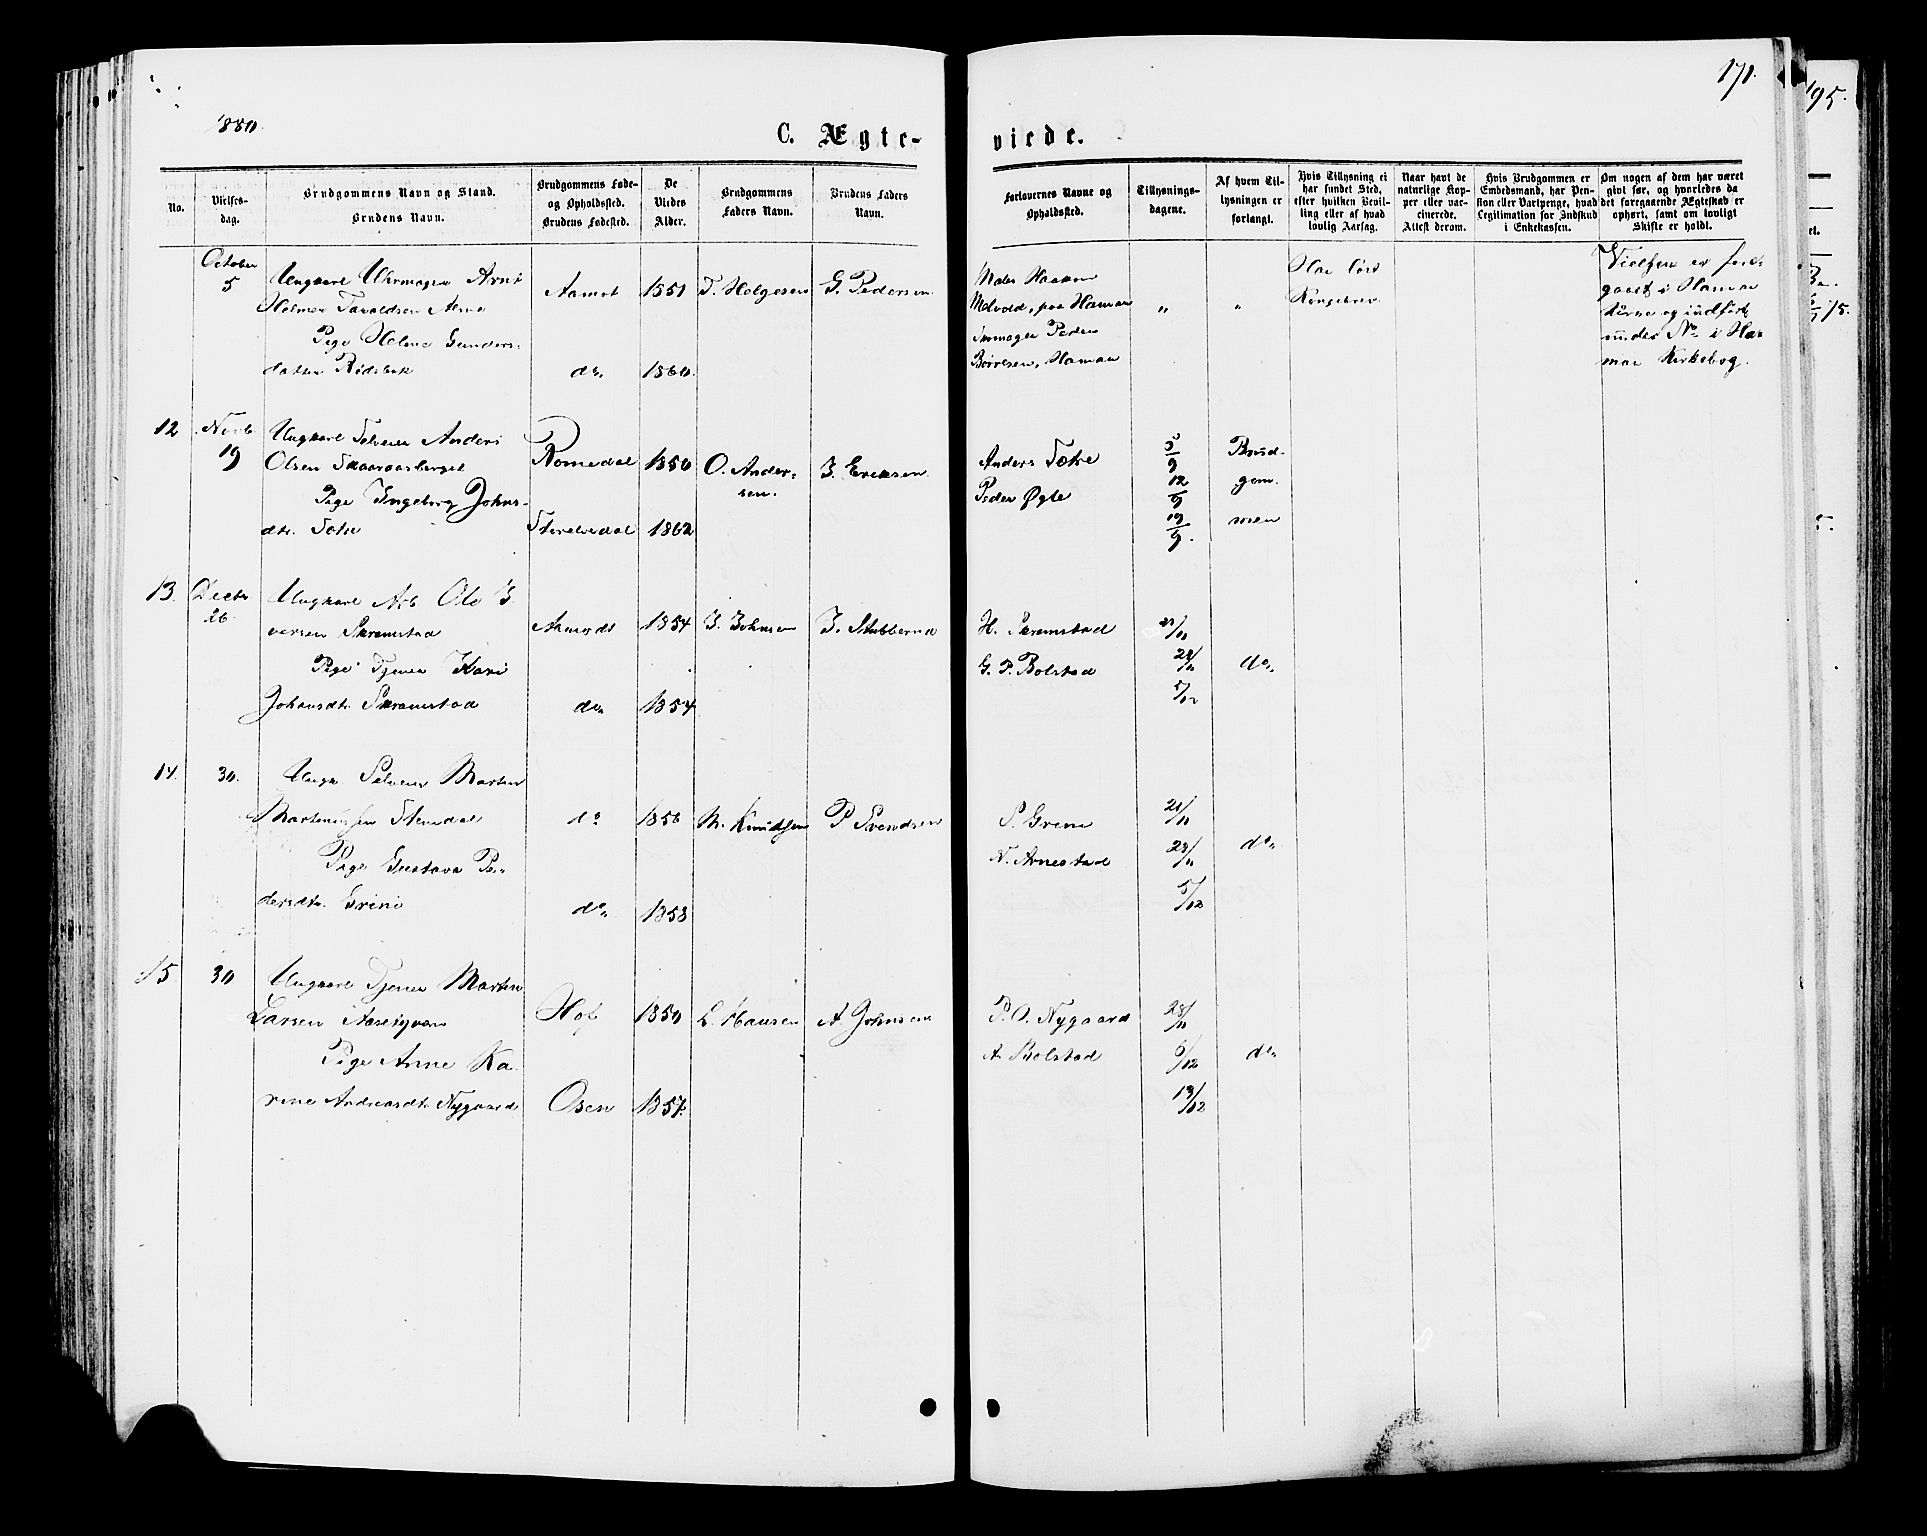 171.
195.
1880.
C. Ægte-
viede.
No.
Vielses-
dag.
Brudgommens Navn og Stand.
Brudens Navn.
Brudgommens Føde-
og Opholdssted.
Brudens Fødested.
De
Viedes
Alder.
Brudgommens
Faders Navn.
Brudens Faders
Navn.
Forlovernes Navne og
Opholdssted.
Tillysnings-
dagene.
Af hvem Til-
lysningen er
forlangt.
Hvis Tillysning ei
har fundet Sted,
efter hvilken Bevil-
ling eller af hvad
lovlig Aarsag.
Naar havt de
naturlige Kop-
per eller vac-
cinerede.
Attest derom.
Hvis Brudgommen er
Embedsmand, har Pen-
sion eller Vartpenge, hvad
Legitimation for Indskud
i Enkekassen.
Om nogen af dem har været
givt før, og hvorledes da
det foregaaende Ægteskab er
ophørt, samt om lovligt
Skifte er holdt.
October
5
Ungkarl Uhrmager Arnt
Helmer Tavaldsen
Pige Helene Gunders-
datter
Aamot
do.
1851
1860.
T. Helgesen
G. Pedersen
Maler Haakon
Melvold, paa Hamar
Peder
Børresen, Hamar
"
"
Har løst
Kongebrev.
Vielsen er fore-
gaaet i Hamar
Kirke og indført
under No i Ha-
mar Kirkebog.
12
Novb
19
Ungkarl Selveier Anders
Olsen Skaaraasberget
Pige Ingeborg Johns-
dtr. Sætre
Romedal
Storelvedal
1850
1862
O. Ander-
sen.
J. Ericsen
Anders Sætre
Peder Øgle
5/9
12/9
19/9.
Brud-
gom-
men
13.
Decbr
26.
Ungkarl Arb Ole I-
versen Skramstad
Pige Tjener Kari
Johansdtr Skramstad
Aamodt
do.
1854
1854
I. Johnsen
J. Stubberud
H. Skramstad
G. P. Bolstad
21/11
28/11
5/12
do.
14.
30.
Ungk Selveier Morten
Martinussen Stenedal
Pige Gustava Pe-
dersdtr. Grini
do
do.
1856
1858
M. Knudsen
P Svendsen
S. Grene
N. Arnestad
21/11
28/11
5/12
do.
15
30
Ungkarl Tjener Morten
Larsen
Pige Anne Ka-
rine Andreasdtr Nygaard
Hof
Osen
1850
1857.
L. Hansen
A. Johnsen
P. O. Nygaard
A. Bolstad
28/11
6/12
13/12
do.